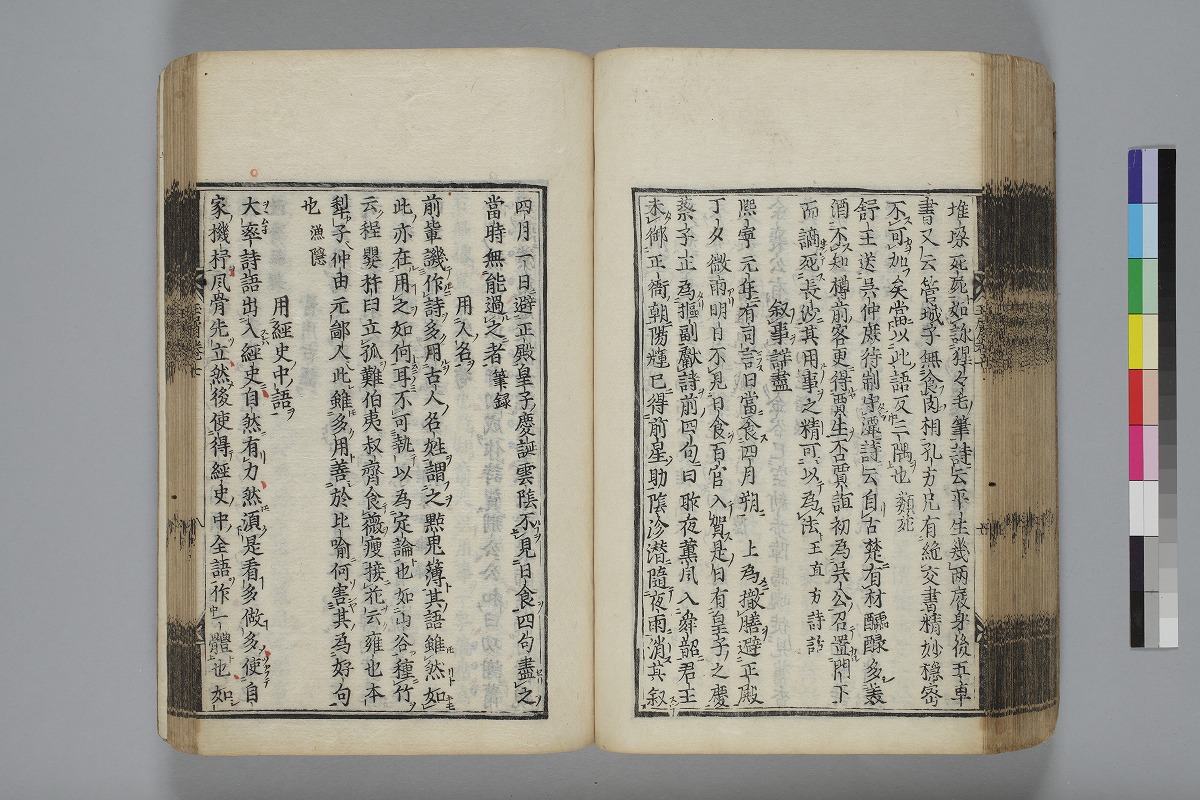 堆垜死屍如詠猩々毛筆詩云平生幾兩屐身後五車
書又云管城子無食肉相孔方兄有絶交書精妙穏宻
不可加矣當以此語反三隅也 類苑
舒王送吳仲庶待制守潭詩云自古楚有材醽醁多美
酒不知樽前客更得賈生否賈誼初為吳公召置門下
而謫死長沙其用事之精可以為法 王直方詩話
叙事詳盡
熙寧元年有司言日當食四月朔 上為撤膳避正殿
丁夕微雨明日不見日食百官入賀是日有皇子之慶
蔡子正為樞副獻詩前四句曰昨夜薫風入舜韶君王
未御正衙朝陽輝已得前星助陰沴潜隨夜雨消其叙
四月一日避正殿皇子慶誕雲陰不見日食四句盡之
當時無能過之者 筆録
用人名
前輩譏作詩多用古人名姓謂之㸃鬼簿其語雖然如
此亦在用之如何耳不可執以為定論也如山谷種竹
云程嬰杵臼立孤難伯夷叔齊食薇瘦接花云雍也本
犁子仲由元鄙人此雖多用善於比喻何害其為好句
也 漁隠
用經史中語
大率詩語出入經史自然有力然湏是看多做多使自
家機杼風骨先立然後使得經史中全語作一體也如